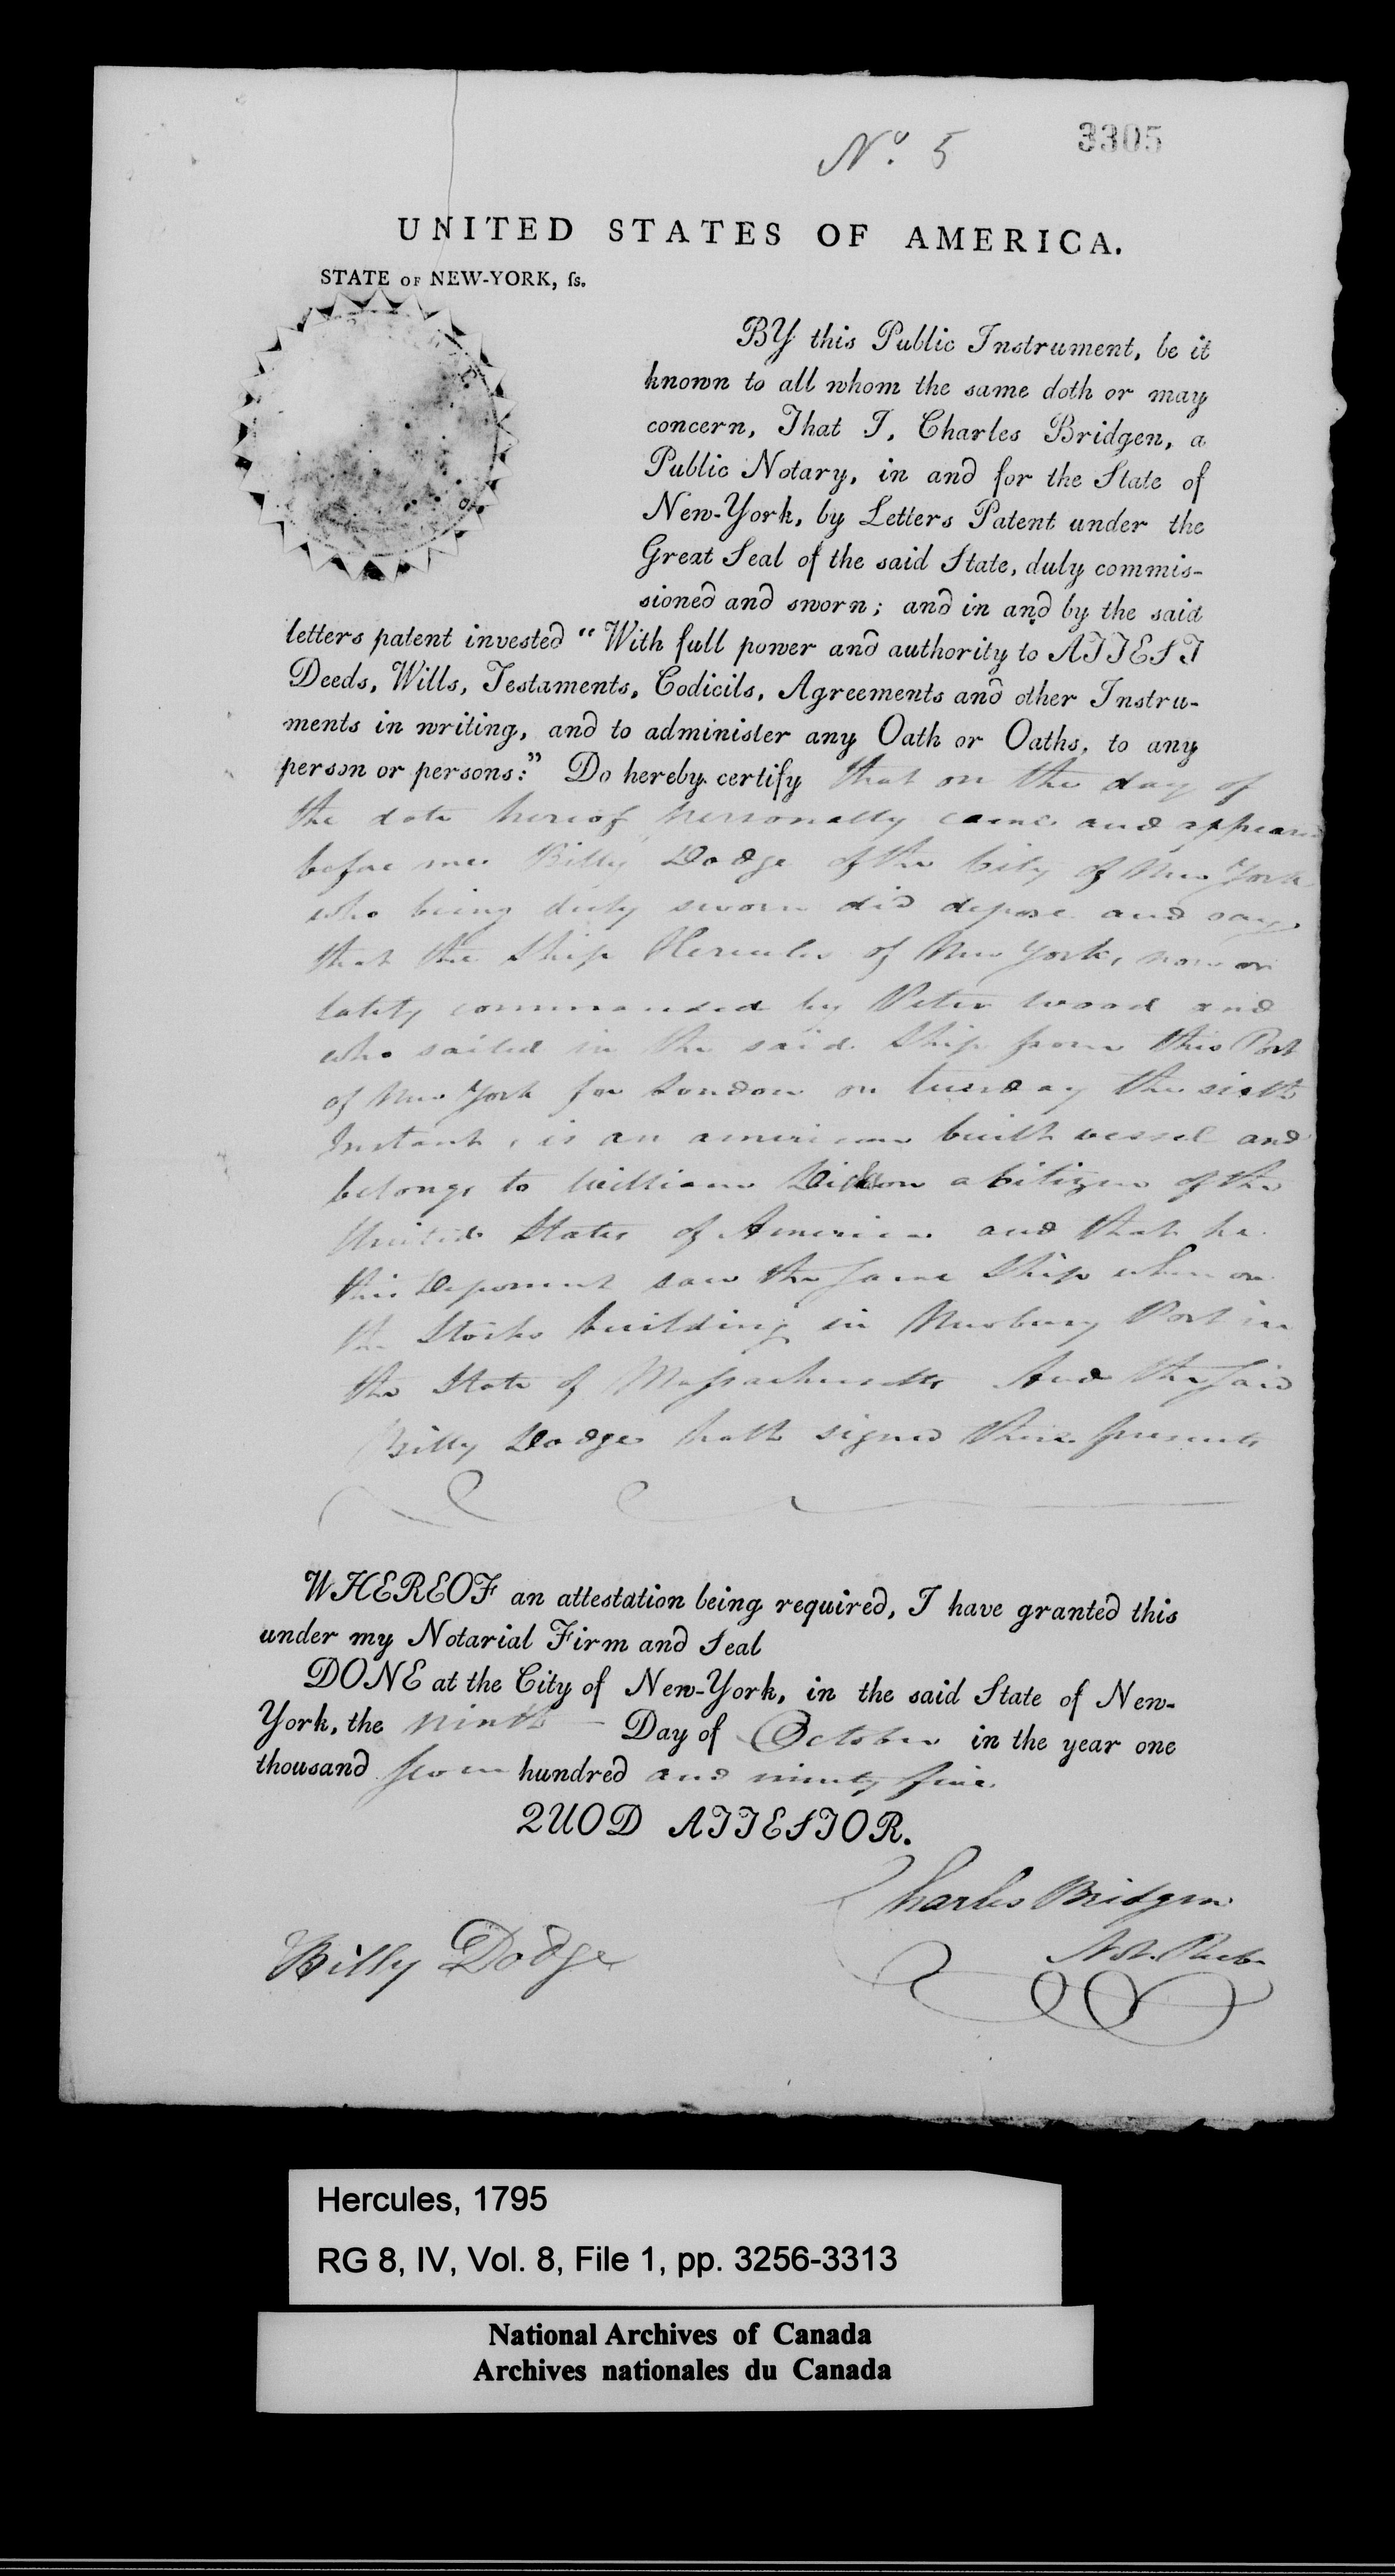 No. 5
3305
UNITED STATES OF AMERICA.
STATE OF NEW-YORK, ſs.
BY this Public Instrument, be it
known to all whom the same doth or may
concern, That I, Charles Bridgen, a
Public Notary, in and for the State of
New-York, by Letters Patent under the
Great Seal of the said State, duly commis-
sioned and sworn; and in and by the said
letters patent invested "With full power and authority to ATTEST
Deeds, Wills, Testaments, Codicils, Agreements and other Instru-
ments in writing, and to administer any Oath or Oaths, to any
person or persons:" Do hereby certify that on the day of
the date hereof personally came and appeared
before me Billy Dodge of the City of New York
who being duly sworn did depose and say
that the Ship Hercules of New York, now or
lately commanded by Peter Wood and
who sailed in the said Ship from this Port
of New York for London on tuesday the sixth
Instant, is an american built vessel and
belongs to William a Citizen of the
United States of America and that he
this Deponent saw the same Ship when on
the Stocks building in Newbury Port in
the State of Massachusetts And the said
Billy Dodge hath signed these presents
WHEREOF an attestation being required, I have granted this
under my Notarial Firm and Seal
DONE at the City of New-York, in the said State of New-
York, the ninth Day of October in the year one
thousand seven hundred and ninety five
QUOD ATTESTOR.
Charles Bridgen
Not. Pub.
Billy Dodge
Hercules, 1795
RG 8, IV, Vol. 8, File 1, pp. 3256-3313
National Archives of Canada
Archives nationales du Canada